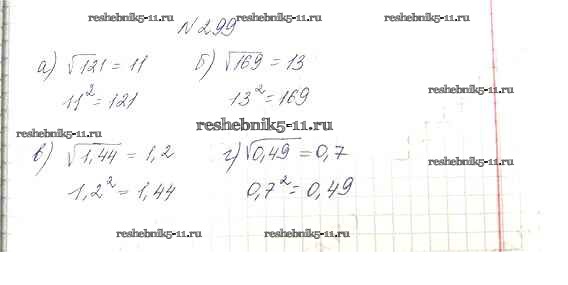 reshebnik5-11.ru reshebnik5-11.ru
N299
а) √121 = 11 б) √169 = 13
11² = 121 13² = 169
reshebnik5-11.ru
reshebnik5-11.ru
reshebnik5-11.ru
в) √1,44 = 1,2 г) √0,49 = 0,7
reshebnik5-11.ru
1,2² = 1,44 0,7² = 0,49
reshebnik5-11.ru reshebnik5-11.ru reshebnik5-11.ru